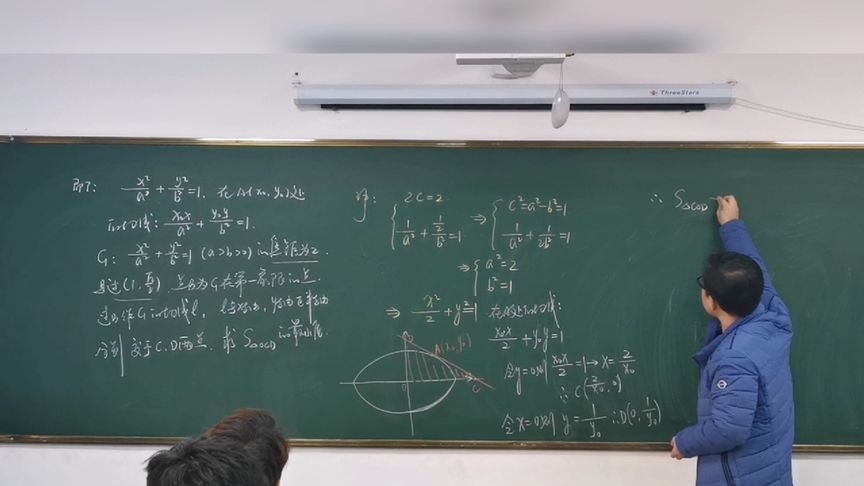 ThreeStars
x²/a² + y²/b² = 1. 在A(x₀, y₀)处
切线: x₀x/a² + y₀y/b² = 1.
G: x²/a² + y²/b² = 1 (a>b>0) 的焦距为2.
且过(1, √2/2). 点A为G在第一象限的点.
过A作G的切线l, l与x, y
分别交于C.D两点. 求 S△COD 的最小值.
2c=2.
1/a² + 1/2/b² = 1
⇒ { c²=a²-b²=1
1/a² + 1/2b² = 1
⇒ { a²=2
b²=1
⇒ x²/2 + y² = 1 在A处的切线:
x₀x/2 + y₀y = 1
令y=0 则 x₀x/2 = 1 → x = 2/x₀
∴ C(2/x₀, 0)
令x=0 则 y = 1/y₀ ∴ D(0, 1/y₀)
A(x₀, y₀)
D
O
C
∴ S△COD